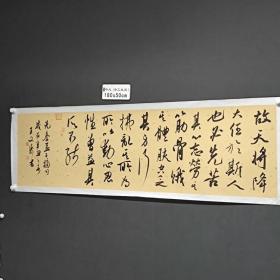 180x50cm
故天将降
大任于斯人
也必先苦
其心志劳其
筋骨饿
其体肤空乏
其身行
拂乱其所为
所以动心忍
性曾益其
所不能